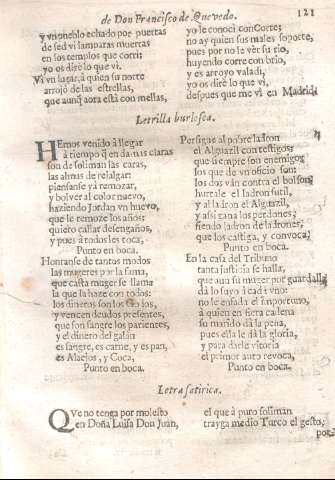 de Don Francisco de Quevedo. 121
y vn pueblo echado por puertas
de sed vi lamparas muertas
en los templos que corri:
yo os dire lo que vi.
Vi vn lugar, à quien su norte
arrojò de las estrellas,
que aunq̃ aora està con mellas,
yo le conoci con Corte;
no ay quien sus males soporte,
pues por no le ver su rio,
huyendo corre con brio,
y es arroyo valadi,
yo os dire lo que vi,
despues que me vi en Madrid.
Letrilla burlesca.
HEmos venido à llegar
à tiempo q̃ en damas claras
son de soliman las caras,
las almas de rejalgar:
piensanse yà remozar,
y bolver al color nuevo,
haziendo Jordan vn huevo,
que le remoze los años:
quieto callar desengaños,
y pues à todos les toca,
Punto en boca.
Honranse de tantos modos
las mugeres por la fama,
que casta muger se llama
la que la haze con todos:
los dineros son los Godos,
y vencen deudos presentes,
que son sangre los parientes,
y el dinero del galan
es sangre, es carne, y es pan,
es Alaejos, y Coca,
Punto en boca.
Persigue al pobre ladron
el Alguazil con testigos;
que siempre son enemigos
los que de vn oficio son:
los dos vàn contra el bolson;
hurtale el ladron sutil,
y al ladron el Alguazil,
y assi gana los perdones;
siendo ladron de ladrones,
que los castiga, y convoca;
Punto en boca.
En la casa del Tribuno
tanta justicia se halla,
que aun su muger por guardalla
dà lo suyo à cada vno:
no le enfada el importuno,
à quien en fiera cadena
su marido dà la pena,
pues ella le dà la gloria,
y para darle vitoria
el primor auto revoca,
Punto en boca.
Letra satirica.
QVe no tenga por molesto
en Doña Luisa Don Juan,
el que à puro soliman
trayga medio Turco el gesto;
por-